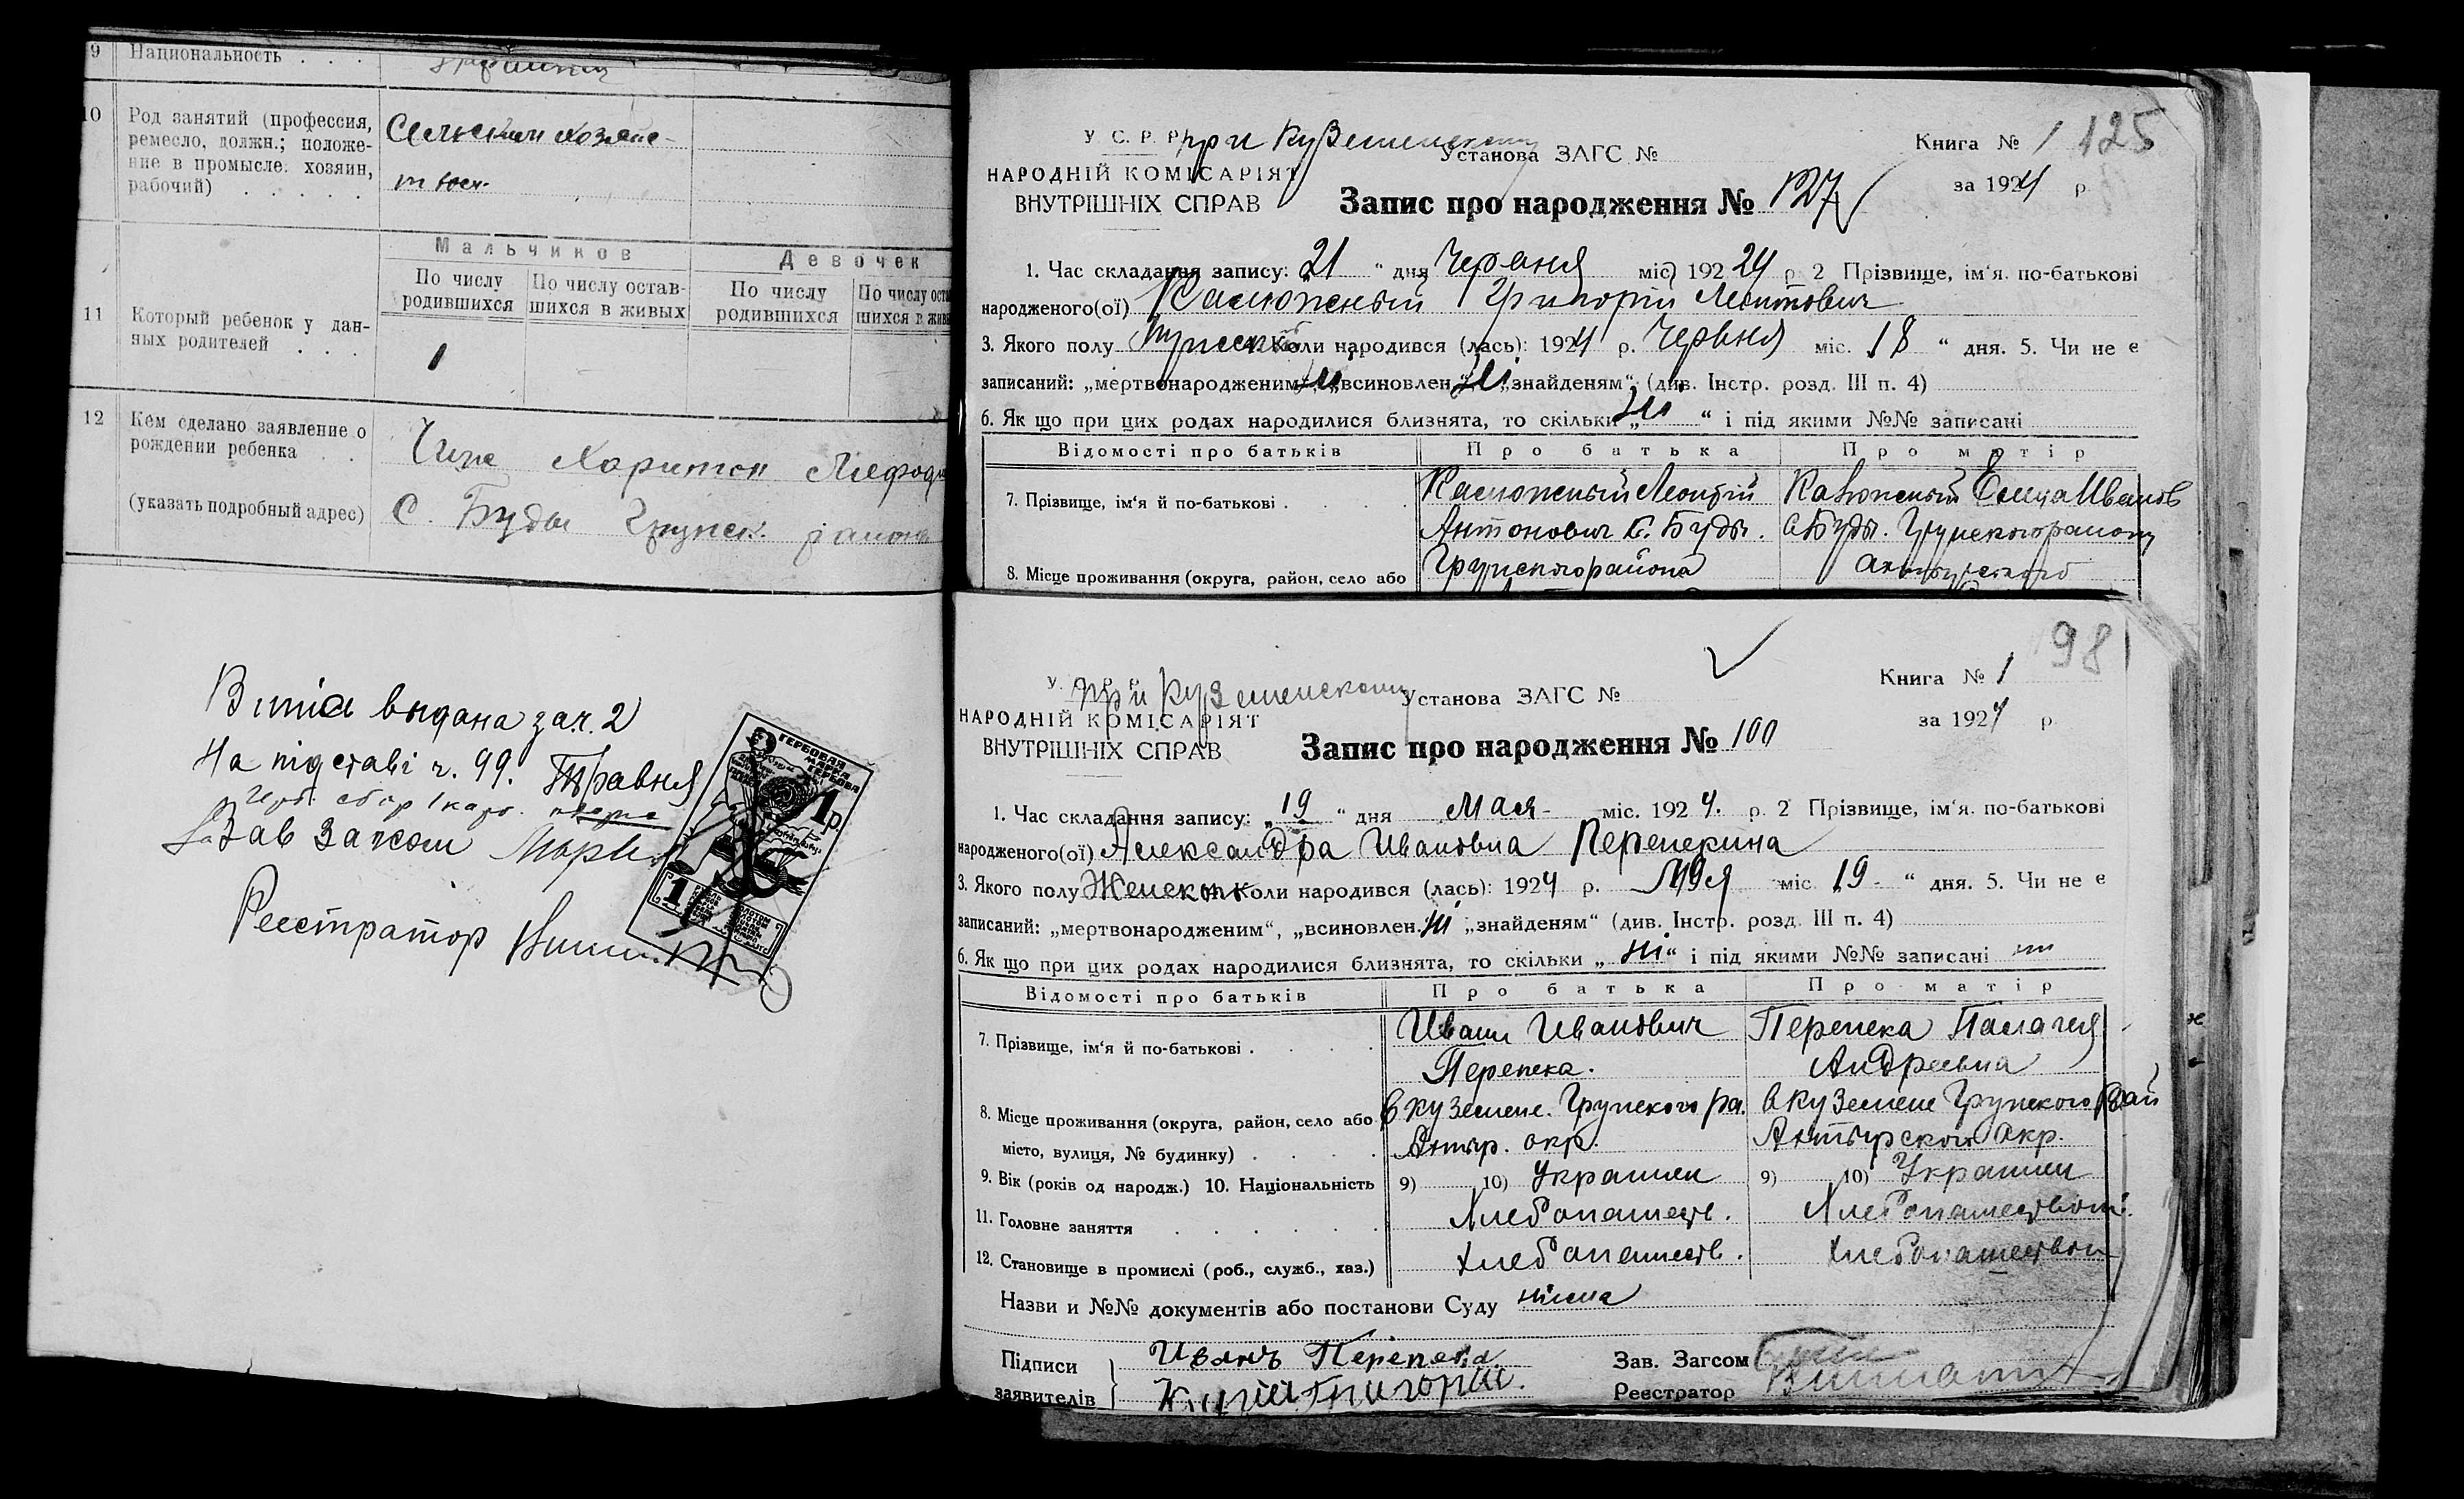 9 Национальность . . .
10 Род занятий (профессия, ремесло, должн.; положение в промысле: хозяин, рабочий) . . . . .
Сельским хозяйс-
твом.
Мальчиков
Девочек
По числу родившихся
По числу остав-шихся в живых
По числу родившихся
По числу оста
шихся в живы
11 Который ребенок у дан-
ных родителей . . .
1
12 Кем сделано заявление о
рождении ребенка . .
Харитон
(указать подробный адрес)
С. Буды Грунск. района
видана за ч. 2
На підставі ч. 99. Травня
Зав Загсом
Реестратор
ГЕРБОВАЯ
МАРКА
1 р.
1
У. С. Р. Р.
при Куземенском
Установа ЗАГС №
Книга № 1
125
НАРОДНІЙ КОМІСАРІЯТ
ВНУТРІШНІХ СПРАВ
за 1924 р.
Запис про народження № 127
1. Час складання запису: 21 “ дня Червня міс. 1924 р. 2 Прізвище, ім‘я. по-батькові
народженого(ої) Калюжный Григорій Леонтович
3. Якого полу Мужеск. 4. Коли народився (лась): 1924 р. Червня міс. 18 “ дня. 5. Чи не є
записаний: „мертвонародженим“, ні „всиновлен.“, ні „знайденям“ (див. Інстр. розд. III п. 4)
6. Як що при цих родах народилися близнята, то скільки „ ні “ і під якими №№ записані
Відомості про батьків
Про батька
Про матір
7. Прізвище, ім‘я й по-батькові . . . .
Калюжный Леонтій
Антонович С. Буды.
Калюжный Елена Иванов
С Буды. Грунского району
8. Місце проживання (округа, район, село або
Грунского района
Ахтырского
98
У. С. Р. Р.
при Куземенском
Установа ЗАГС №
Книга № 1
НАРОДНІЙ КОМІСАРІЯТ
ВНУТРІШНІХ СПРАВ
за 1924 р.
Запис про народження № 100
1. Час складання запису: „19 “ дня Мая - міс. 1924. р. 2 Прізвище, ім‘я. по-батькові
народженого(ої) Александра Ивановна Перепекина
3. Якого полу Женск. 4. Коли народився (лась): 1924 р. Мая міс. 19 - “ дня. 5. Чи не є
записаний: „мертвонародженим“, „всиновлен. ні „знайденям“ (див. Інстр. розд. III п. 4)
6. Як що при цих родах народилися близнята, то скільки „ ні “ і під якими №№ записані ні
Відомості про батьків
Про батька
Про матір
7. Прізвище, ім‘я й по-батькові . . . .
Иван Иванович
Перепека.
Перепека Палагея
Андреевна
8. Місце проживання (округа, район, село або
місто, вулиця, № будинку) . . . .
в Куземене. Грунского ра.
Ахтыр. окр.
в Куземене Грунского Рай
Ахтырского Окр.
9. Вік (років од народж.) 10. Національність
9) 10) Украинец
9) 10) Украинец
11. Головне заняття . . . . .
Хлебопашеств.
Хлебопашеством.
12. Становище в промислі (роб., служб., хаз.)
Хлебопашеств.
Хлебопашеством
Назви и №№ документів або постанови Суду нима
Підписи
заявителів
Иванъ Перепека.
Григорій.
Зав. Загсом
Реєстратор